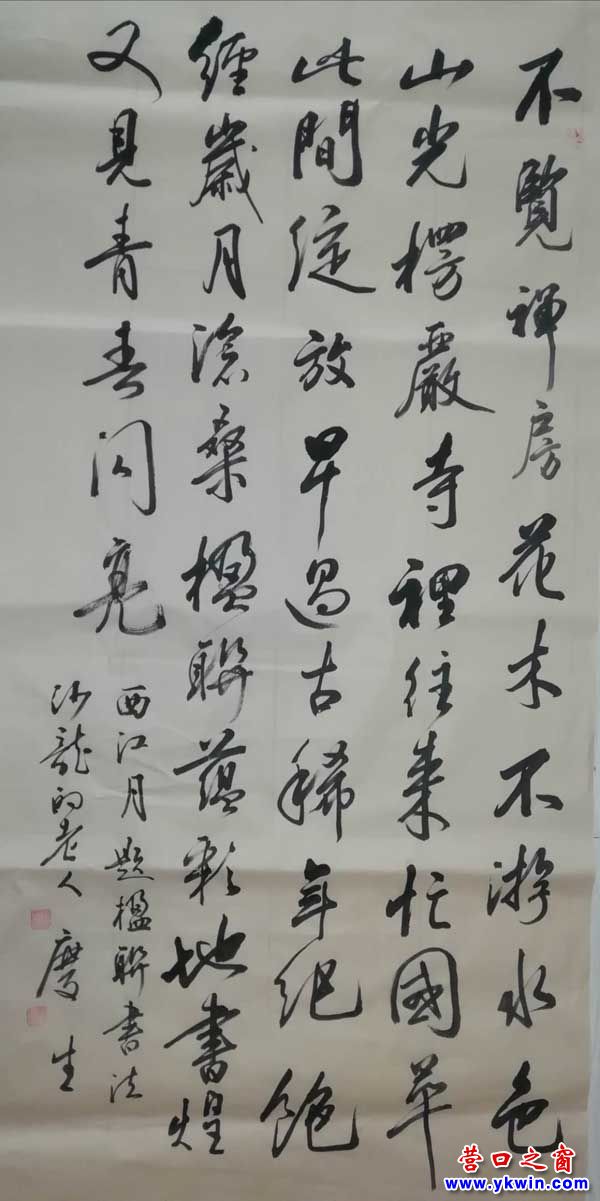 不覽禪房花木不游水色
山光楞嚴寺裡往来忙國萃
此間綻放早過古稀年紀飽
經歲月滄桑楹聯蘊彩地書煌
又見青春闪亮
西江月題楹聯書法
沙龍的老人 慶生
营口之窗
www.ykwin.com